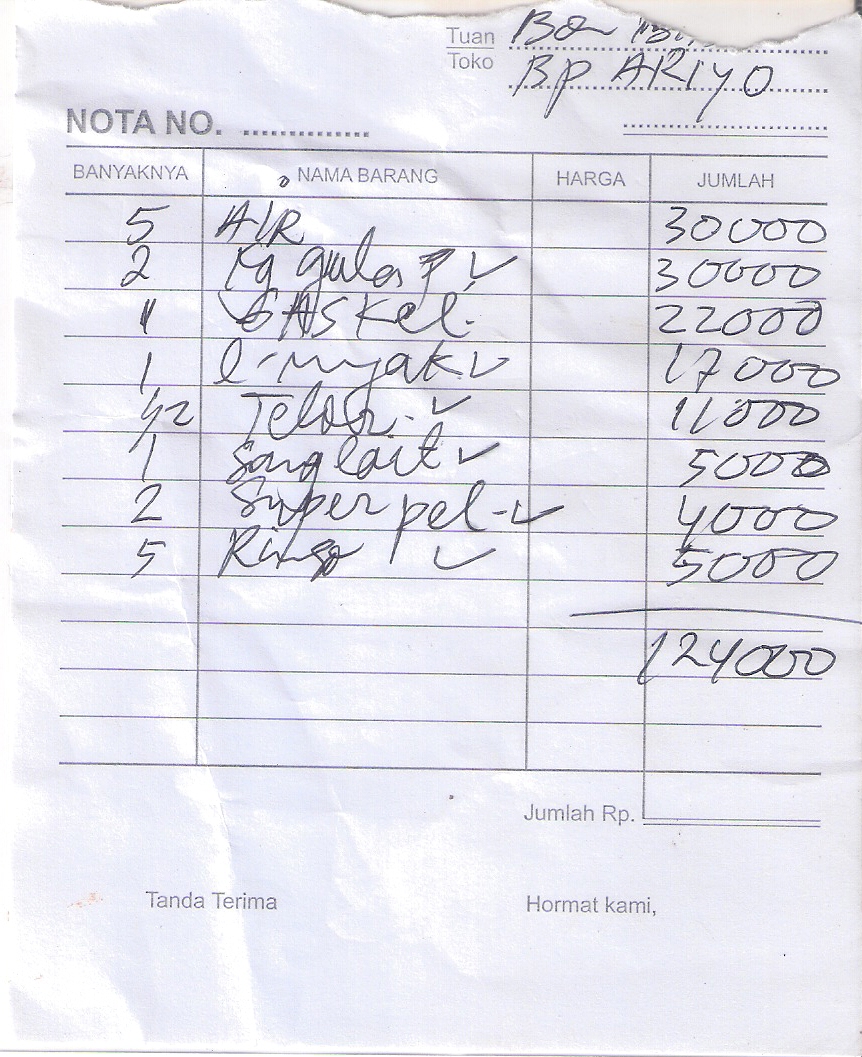 Tuan
Toko
Bp ARIYO
NOTA NO.
BANYAKNYA NAMA BARANG HARGA JUMLAH
5 AIR 30000
2 kg gula P ✓ 30000
1 GAS Kel. 22000
1 l-mnyak ✓ 17000
1/2 Telor - ✓ 11000
1 Sunglait ✓ 5000
2 Super pel - ✓ 4000
5 Rinso ✓ 5000
124000
Jumlah Rp.
Tanda Terima Hormat kami,